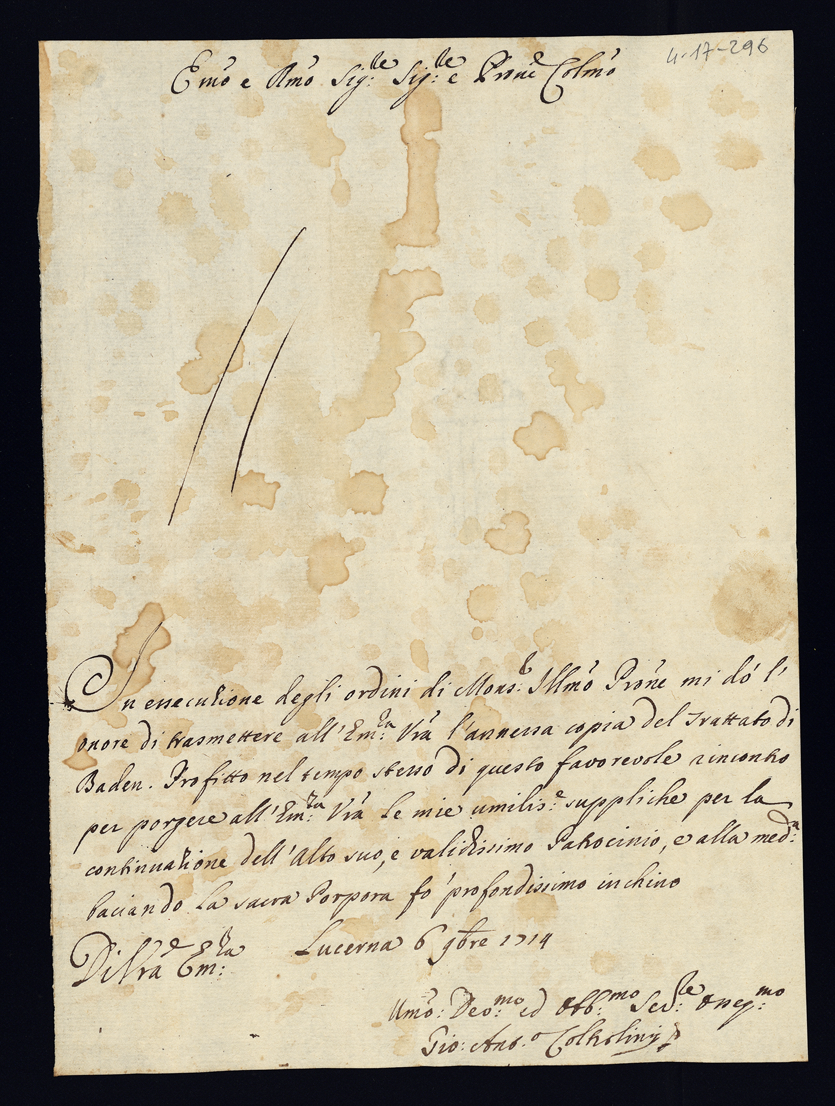 4-17-296
Emõ e Rmõ Sig:re Sig:re e Prone Colmõ
In essecutione degli ordini di Mons:r Illmõ Prõne mi dò l'
onore di trasmettere all'Em:za Vrã l'annessa copia del Trattato di
Baden. Profitto nel tempo stesso di questo favorevole rincontro
per porgere all'Em:za Vrã le mie umilis:e suppliche per la
continuatione dell'Alto suo, e validissimo Patrocinio, e alla med:a
baciando la sacra Porpora fò profondissimo inchino
Di Vrã Em:za Lucerna 6 9bre 1714
Umõ: Deo:mo ed Obb:mo Ser:re Oneq:mo
Gio: Ant:o